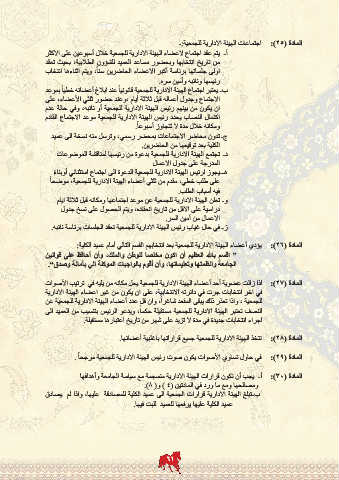 المادة (٢٥): اجتماعات الهيئة الادارية للجمعية:.
أ. يتم عقد اجتماع لاعضاء الهيئة الادارية للجمعية خلال أسبوعين على الاكثر
من تاريخ انتخابها وبحضور مساعد العميد للشؤون الطلابية، بحيث تعقد
اولى جلساتها برئاسة أكبر الاعضاء الحاضرين سنا، ويتم اثناءها انتخاب
رئيسها ونائبه وأمين سره.
ب. يعتبر اجتماع الهيئة الادارية للجمعية قانونياً عند ابلاغ أعضائه خطياً بموعد
الاجتماع وجدول أعماله قبل ثلاثة أيام موعد حضور ثلثي الأعضاء، على
ان يكون من بينهم رئيس الهيئة الادارية للجمعية أو نائبه، وفي حالة عدم
اكتمال النصاب يحدد رئيس الهيئة الادارية للجمعية موعد الاجتماع القادم
ومكانه خلال مدة لا تتجاوز أسبوعاً.
ج. تدون محاضر الاجتماعات بمحضر رسمي، وترسل منه نسخة الى عميد
الكلية بعد توقيعها من الحاضرين.
د. تجتمع الهيئة الادارية للجمعية بدعوة من رئيسها لمناقشة الموضوعات
المدرجة على جدول الاعمال
هـ. يجوز لرئيس الهيئة الادارية للجمعية الدعوة الى اجتماع استثنائي أو بناء
على طلب خطي، مقدم من ثلثي أعضاء الهيئة الادارية للجمعية، موضحاً
فيه أسباب الطلب.
و. تعلن الهيئة الادارية للجمعية عن موعد اجتماعها ومكانه قبل ثلاثة ايام
دراسية على الاقل من تاريخ انعقاده، ويتم الحصول على نسخ جدول
الاعمال من أمين السر.
ز. في حال غياب رئيس الهيئة الادارية للجمعية تعقد الجلسات برئاسة نائبه.
المادة (٢٦): يؤدي أعضاء الهيئة الادارية للجمعية بعد انتخابهم القسم التالي أمام عميد الكلية:
" اقسم بالله العظيم ان اكون مخلصا للوطن والملك، وأن أحافظ على قوانين
الجامعة وأنظمتها وتعليماتها، وأن أقوم بالواجبات الموكلة الي بأمانة وصدق".
المادة (٢٧): اذا زالت عضوية أحد أعضاء الهيئة الادارية للجمعية يحل مكانه من يليه في ترتيب الأصوات
في آخر انتخابات جرت في دائرته الانتخابية، على ان يكون من غير اعضاء الهيئة الادارية
للجمعية، واذا تعذر ذلك يبقى المقعد شاغرا، وان قل عدد أعضاء الهيئة الادارية للجمعية عن
النصف تعتبر الهيئة الادارية للجمعية مستقيلة حكما، ويدعو الرئيس بتنسيب من العميد الى
اجراء انتخابات جديدة في مدة لا تزيد على شهر من تاريخ اعتبارها مستقيلة.
المادة (٢٨): تتخذ الهيئة الادارية للجمعية جميع قراراتها بأغلبية أعضائها.
المادة (٢٩): في حال تساوي الأصوات يكون صوت رئيس الهيئة الادارية للجمعية مرجحاً.
المادة (٣٠): أ. يجب أن تكون قرارات الهيئة الادارية منسجمة مع سياسة الجامعة وأهدافها
ومصالحها ومع ما ورد في المادتين (٤) و (٨).
ب. تبلغ الهيئة الادارية قرارات الجمعية الى عميد الكلية للمصادقة عليها، واذا لم يصادق
عميد الكلية عليها يرفعها للعميد للبت فيها.